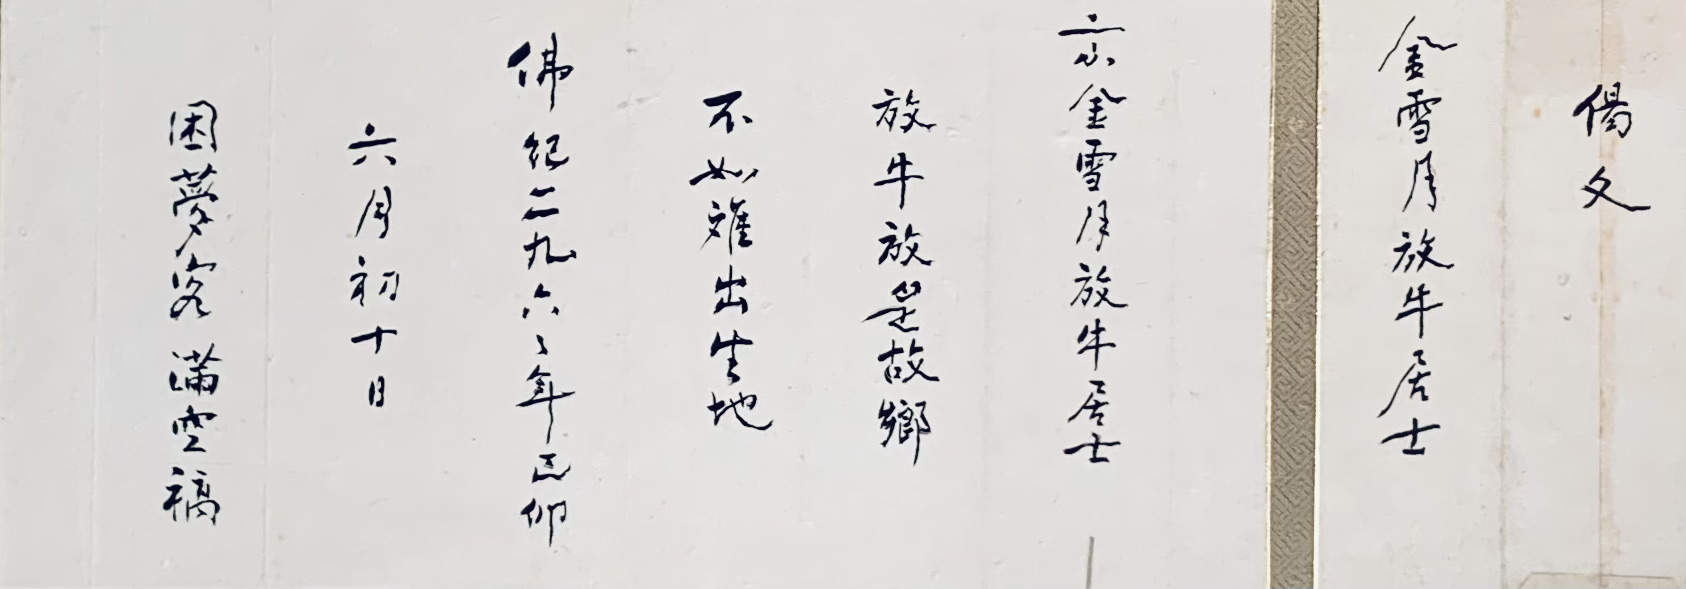 偈文
金雪月放牛居士
示金雪月放牛居士
放牛放是故鄉
不如離出生地
佛紀二九六々年己卯
六月初十日
困夢客 滿空稿